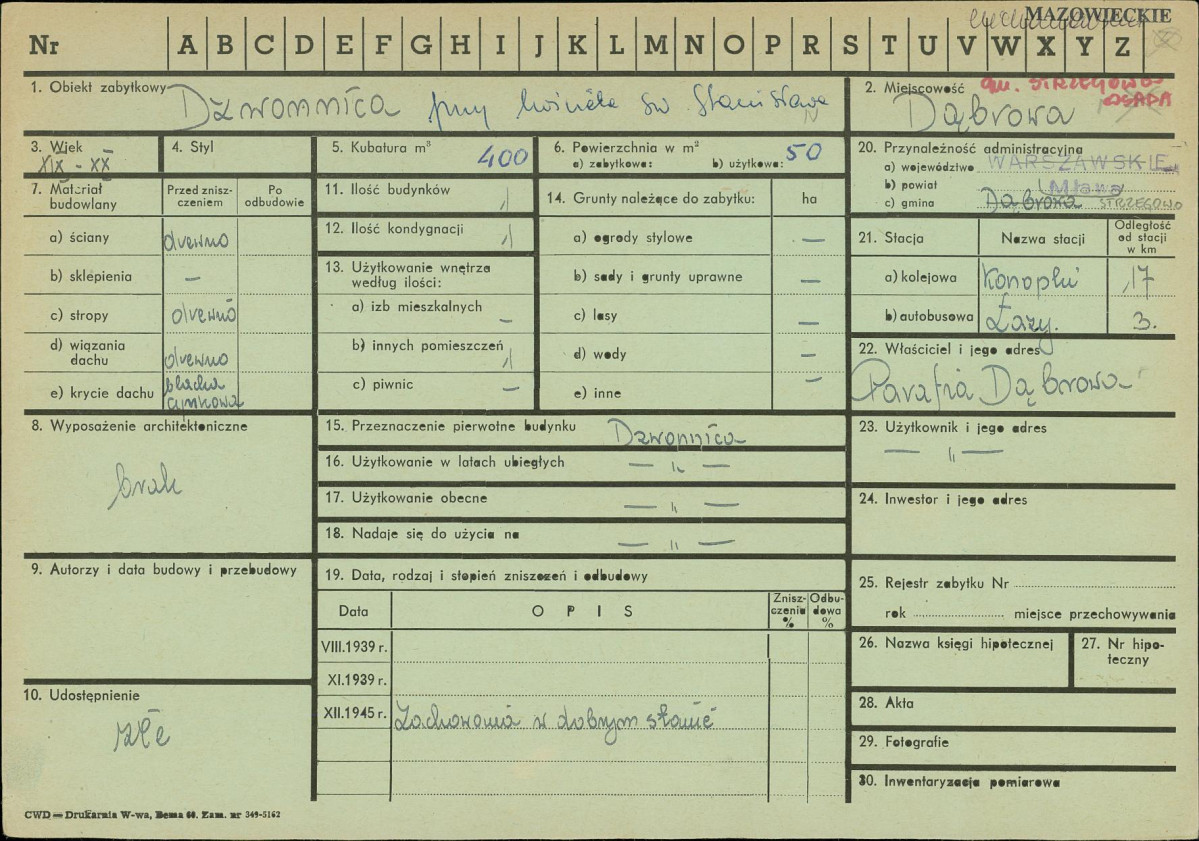 MAZOWIECKIE
Nr A B C D E F G H I J K L M N O P R S T U V W X Y Z
1. Obiekt zabytkowy Dzwonnica przy kościele św Stanisława
2. Miejscowość gm. STRZEGOWO-
OSADA
Dąbrowa
3. Wiek
XIX - XX
4. Styl
5. Kubatura m³ 400
6. Powierzchnia w m²
a) zabytkowa: b) użytkowa: 50
20. Przynależność administracyjna
a) województwo WARSZAWSKIE
b) powiat Mława
c) gmina Dąbrowa STRZEGOWO
7. Materiał
budowlany
Przed znisz-
czeniem
Po
odbudowie
a) ściany drewno
b) sklepienia —
c) stropy drewno
d) wiązania
dachu drewno
e) krycie dachu blacha
cynkowa
11. Ilość budynków 1
12. Ilość kondygnacji 1
13. Użytkowanie wnętrza
według ilości:
a) izb mieszkalnych —
b) innych pomieszczeń 1
c) piwnic —
14. Grunty należące do zabytku: ha
a) ogrody stylowe —
b) sady i grunty uprawne —
c) lasy —
d) wody —
e) inne —
21. Stacja Nazwa stacji Odległość
od stacji
w km
a) kolejowa Konopki 17
b) autobusowa Łazy. 3.
22. Właściciel i jego adres
Parafia Dąbrowa
8. Wyposażenie architektoniczne
brak
15. Przeznaczenie pierwotne budynku Dzwonnica
16. Użytkowanie w latach ubiegłych — „ —
17. Użytkowanie obecne — „ —
18. Nadaje się do użycia na — „ —
23. Użytkownik i jego adres
— „ —
24. Inwestor i jego adres
9. Autorzy i data budowy i przebudowy
19. Data, rodzaj i stopień zniszczeń i odbudowy
Data OPIS Znisz-
czenia
%
Odbu-
dowa
%
VIII.1939 r.
XI.1939 r.
XII.1945 r. Zachowania w dobrym stanie
10. Udostępnienie
złe
25. Rejestr zabytku Nr
rok miejsce przechowywania
26. Nazwa księgi hipotecznej
27. Nr hipo-
teczny
28. Akta
29. Fotografie
30. Inwentaryzacja pomiarowa
CWD — Drukarnia W-wa, Bema 60. Zam. nr 349-5162